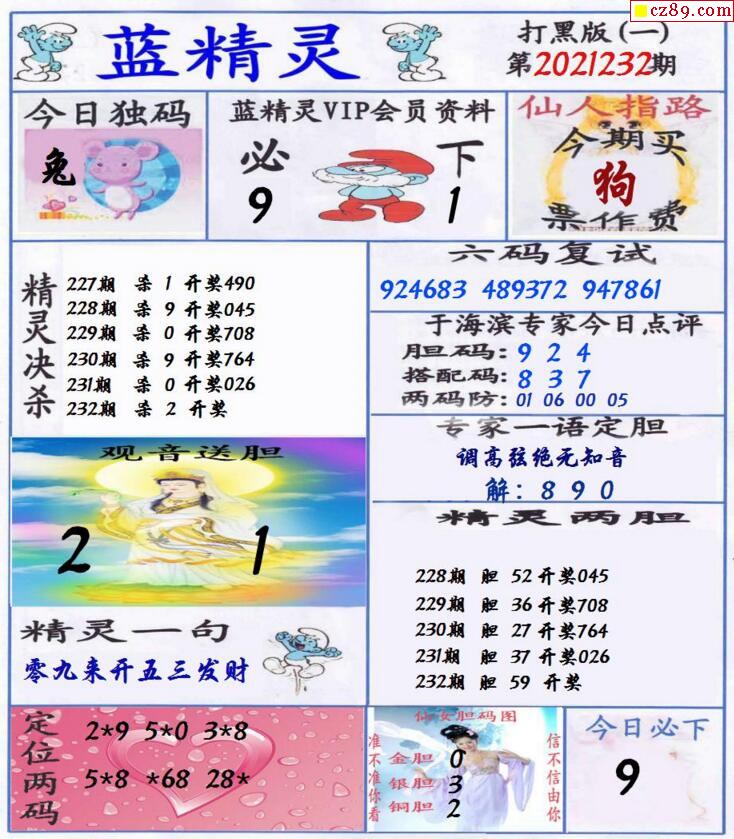 cz89.com
蓝精灵
打黑版(一)
第2021232期
今日独码
兔
蓝精灵VIP会员资料
必 下
9 1
仙人指路
今期买
狗
票作费
精灵决杀
227期 杀 1 开奖490
228期 杀 9 开奖045
229期 杀 0 开奖708
230期 杀 9 开奖764
231期 杀 0 开奖026
232期 杀 2 开奖
六码复试
924683 489372 947861
于海滨专家今日点评
胆码: 9 2 4
搭配码: 8 3 7
两码防: 01 06 00 05
专家一语定胆
调高弦绝无知音
解: 8 9 0
观音送胆
2 1
精灵两胆
228期 胆 52 开奖045
229期 胆 36 开奖708
230期 胆 27 开奖764
231期 胆 37 开奖026
232期 胆 59 开奖
精灵一句
零九来开五三发财
定位两码
2*9 5*0 3*8
5*8 *68 28*
仙女胆码图
准不准你看
金胆 0
银胆 3
铜胆 2
信不信由你
今日必下
9